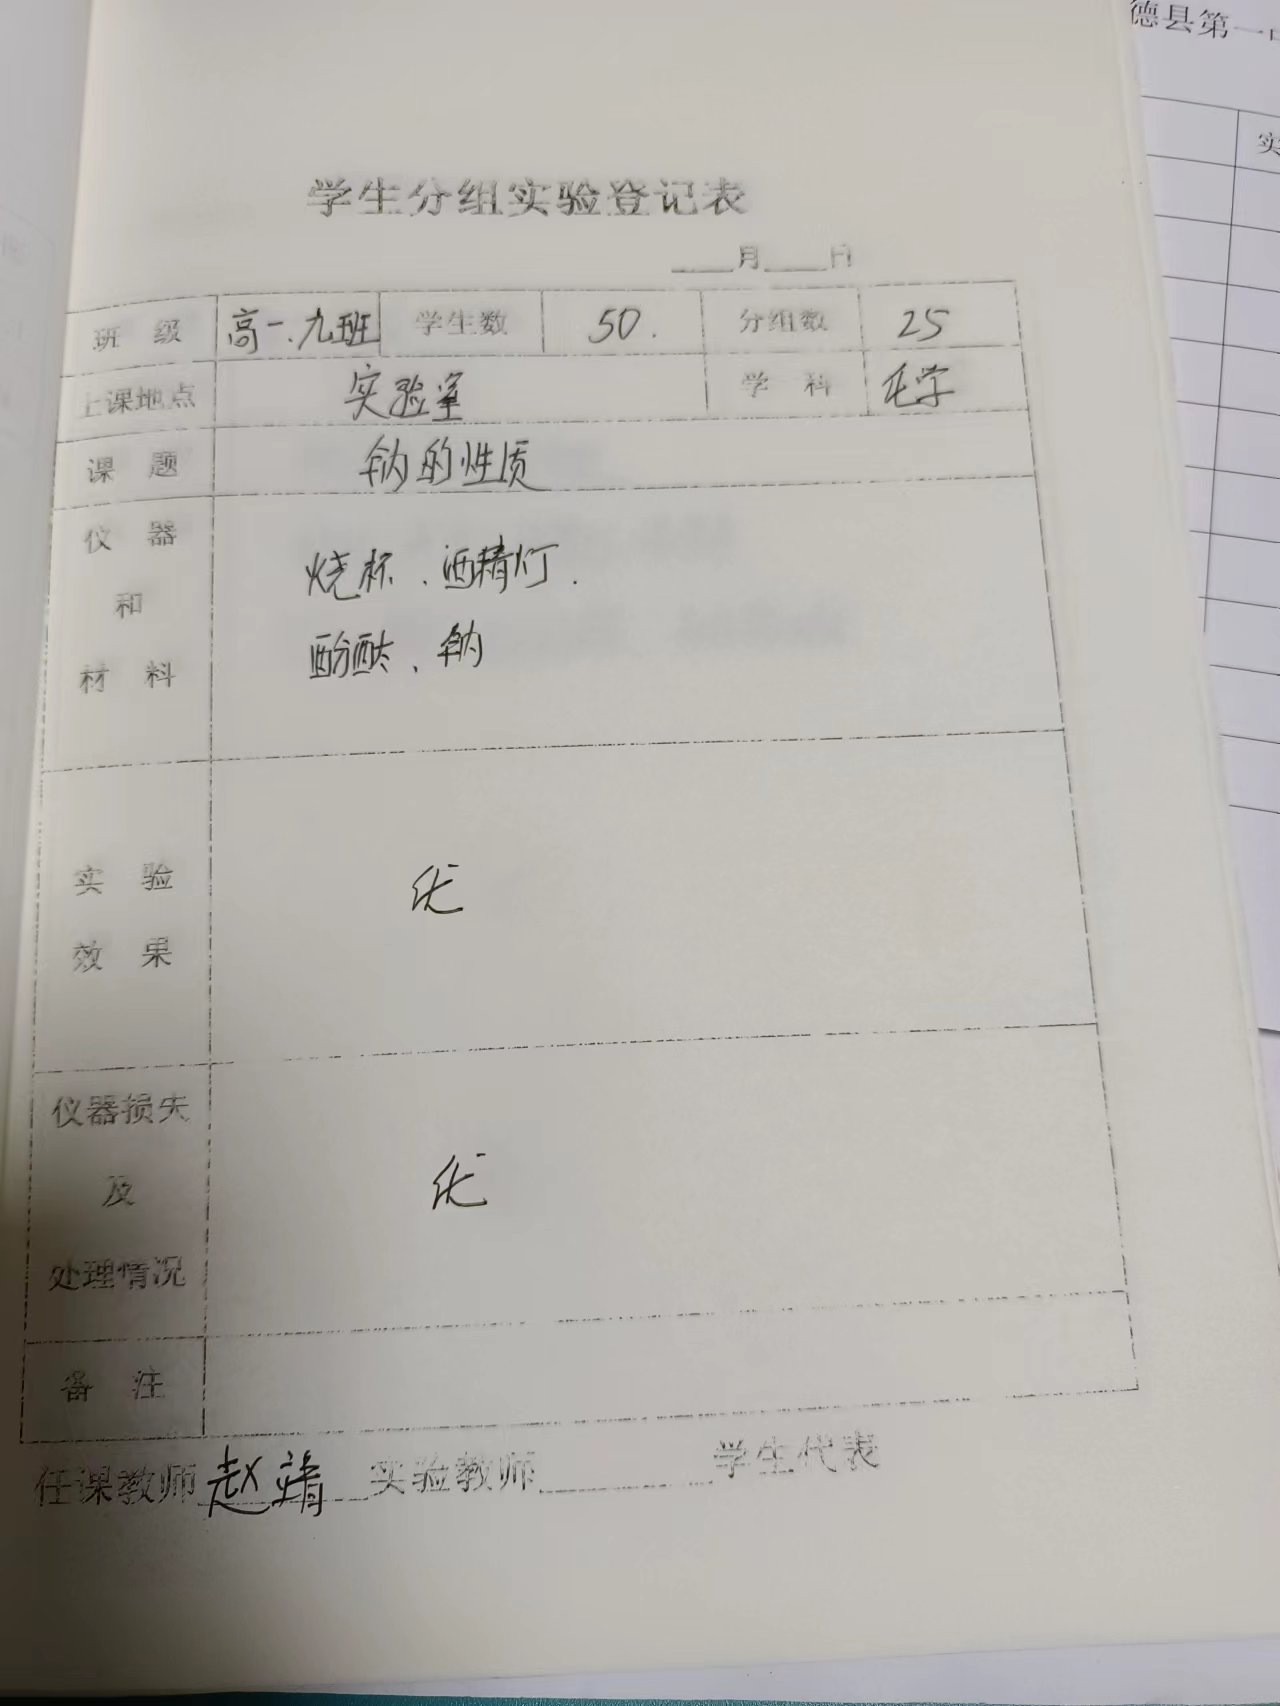 德县第一
实
学生分组实验登记表
____月____日
班 级 高一.九班 学生数 50. 分组数 25
上课地点 实验室 学 科 化学
课 题 钠的性质
仪 器
和
材 料
烧杯、酒精灯.
酚酞、钠
实 验
效 果
优
仪器损失
及
处理情况
优
备 注
任课教师 赵靖 实验教师______学生代表